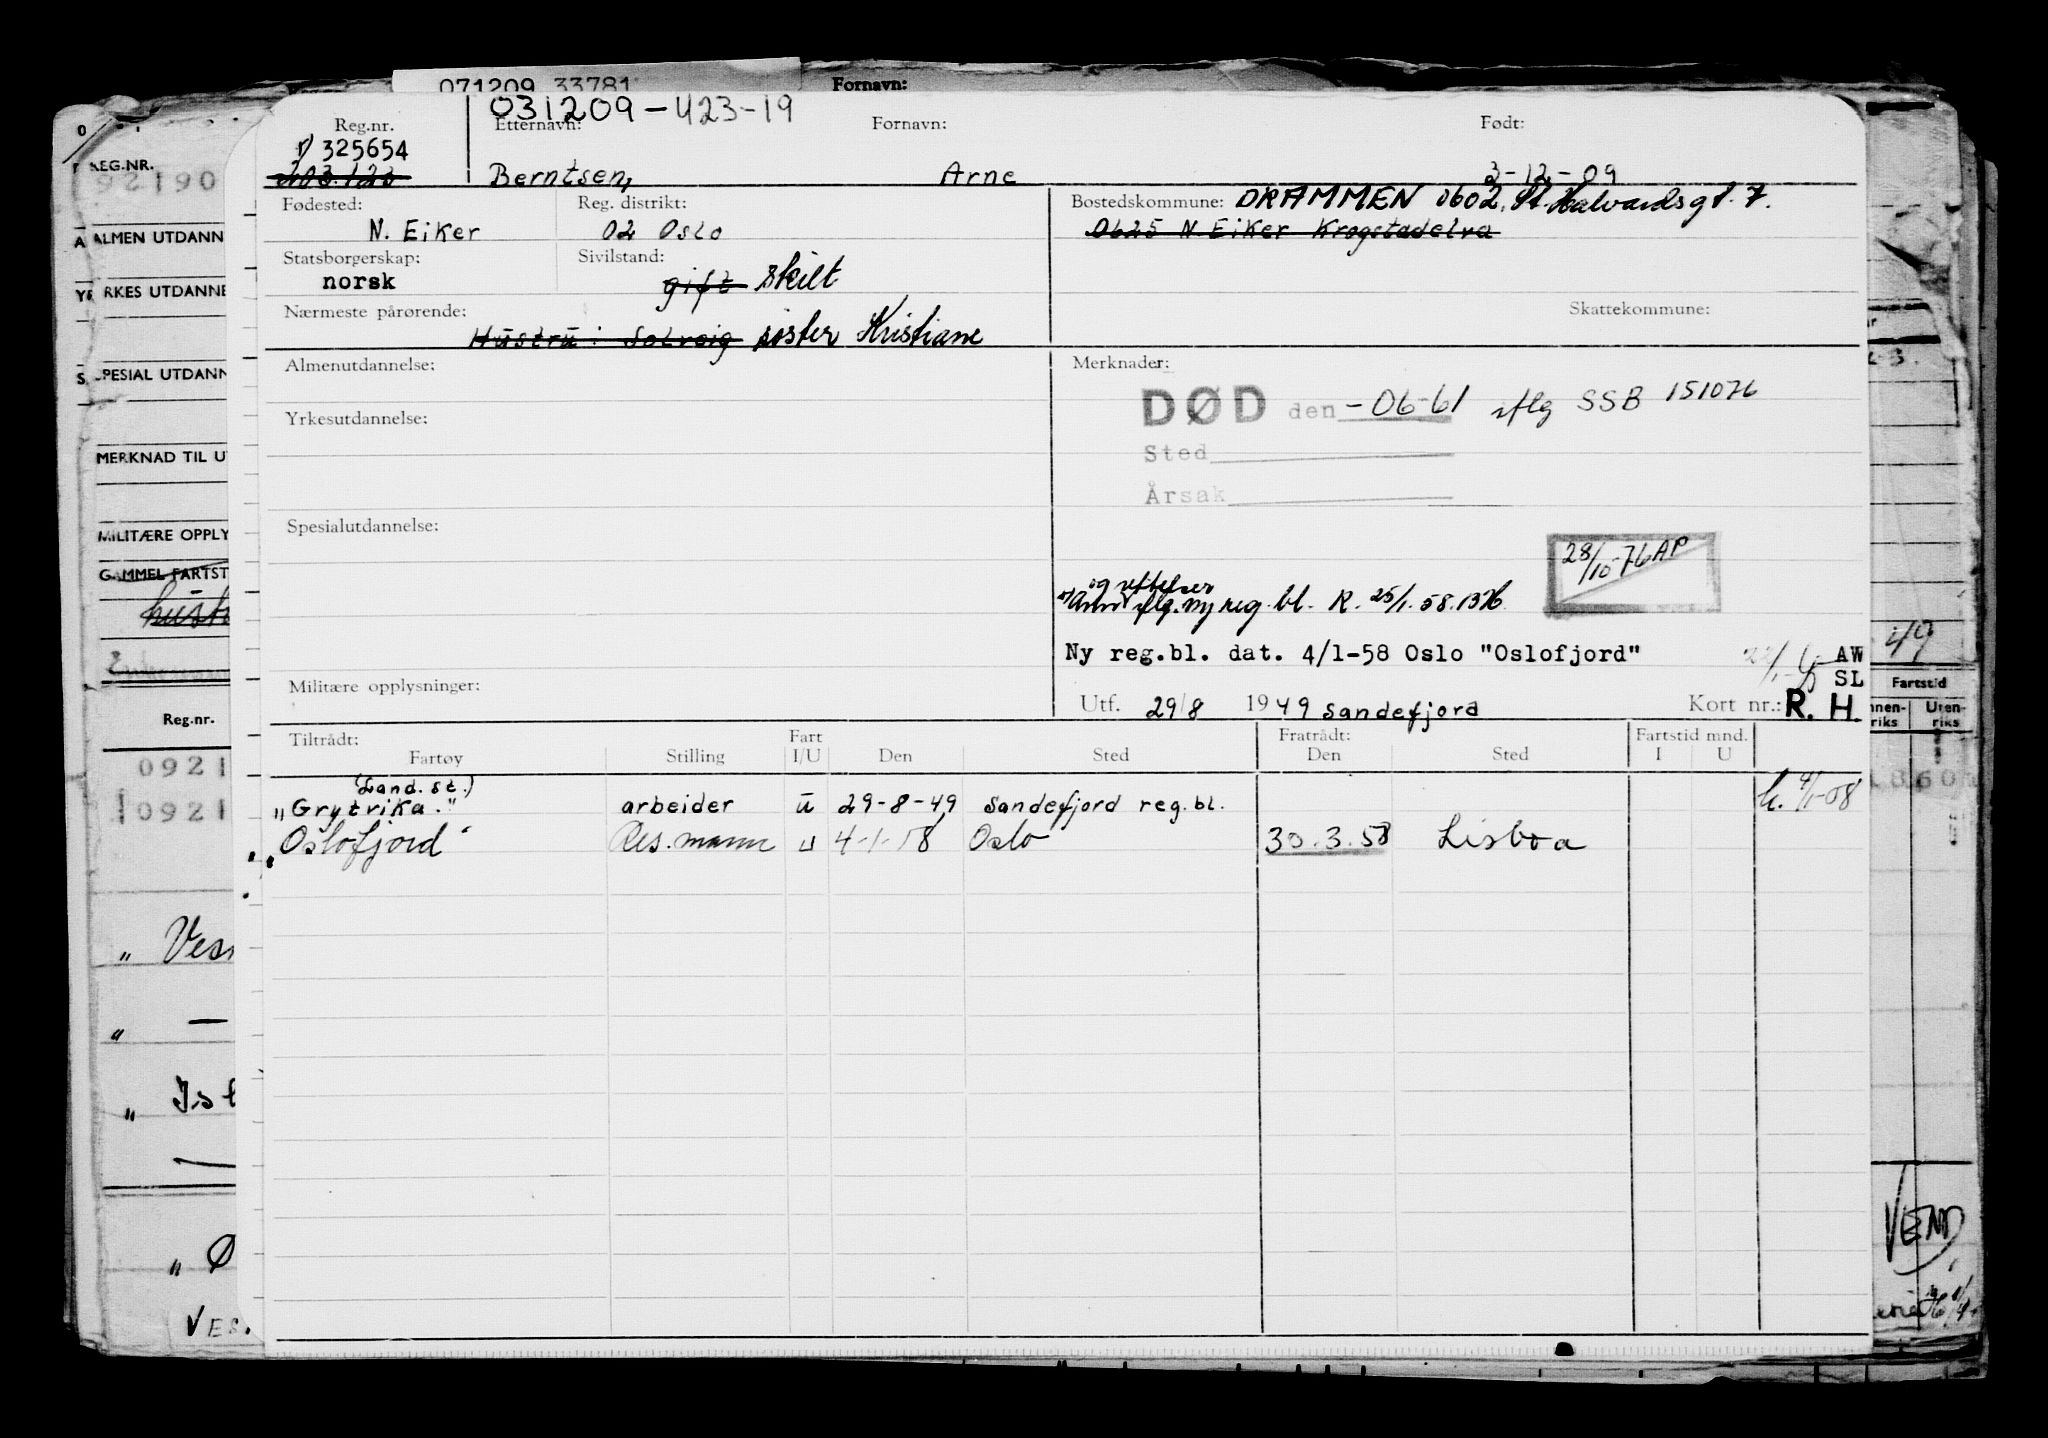 071209 33781
Fornavn:
031209-423-19
Reg.nr.
Etternavn:
Fornavn:
Født:
325654
203.123
Berntsen,
Arne
3-12-09
Fødested:
N. Eiker
Reg. distrikt:
02 Oslo
Bostedskommune: DRAMMEN 0602, St. Halvardsgt. 7.
0625 N. Eiker Krogstadelva
Statsborgerskap:
norsk
Sivilstand:
gift skilt
Nærmeste pårørende:
Hustru: Solveig søster Kristiane
Skattekommune:
Almenutdannelse:
Merknader:
DØD den -06-61 iflg SSB 151076
Yrkesutdannelse:
Sted
Årsak
Spesialutdannelse:
28/10-76 AP
og
iflg. ny reg. bl. R. 25/1.58.1376
Ny reg.bl. dat. 4/1-58 Oslo "Oslofjord"
AW
SL
Militære opplysninger:
Utf. 29/8 1949 Sandefjord
Kort nr.: R. H.
Tiltrådt:
Fartøy
Stilling
Fart
I/U
Den
Sted
Fratrådt:
Den
Sted
Fartstid mnd.
I
U
(Land. st.)
"Grytvika."
arbeider
u
29-8-49
Sandefjord reg.bl.
"Oslofjord"
Res. mann
u
4-1-58
Oslo
30.3.58
Lisboa
REG.NR.
92190
ALMEN UTDANN
YRKES UTDANNE
SPESIAL UTDANN
MERKNAD TIL U
MILITÆRE OPPLY
GAMMEL FARTST
Reg.nr.
0921
0921
Fartstid
nnen-
riks
Uten-
riks
" Ves
"
" Ist
" Ø
VES.
VEND